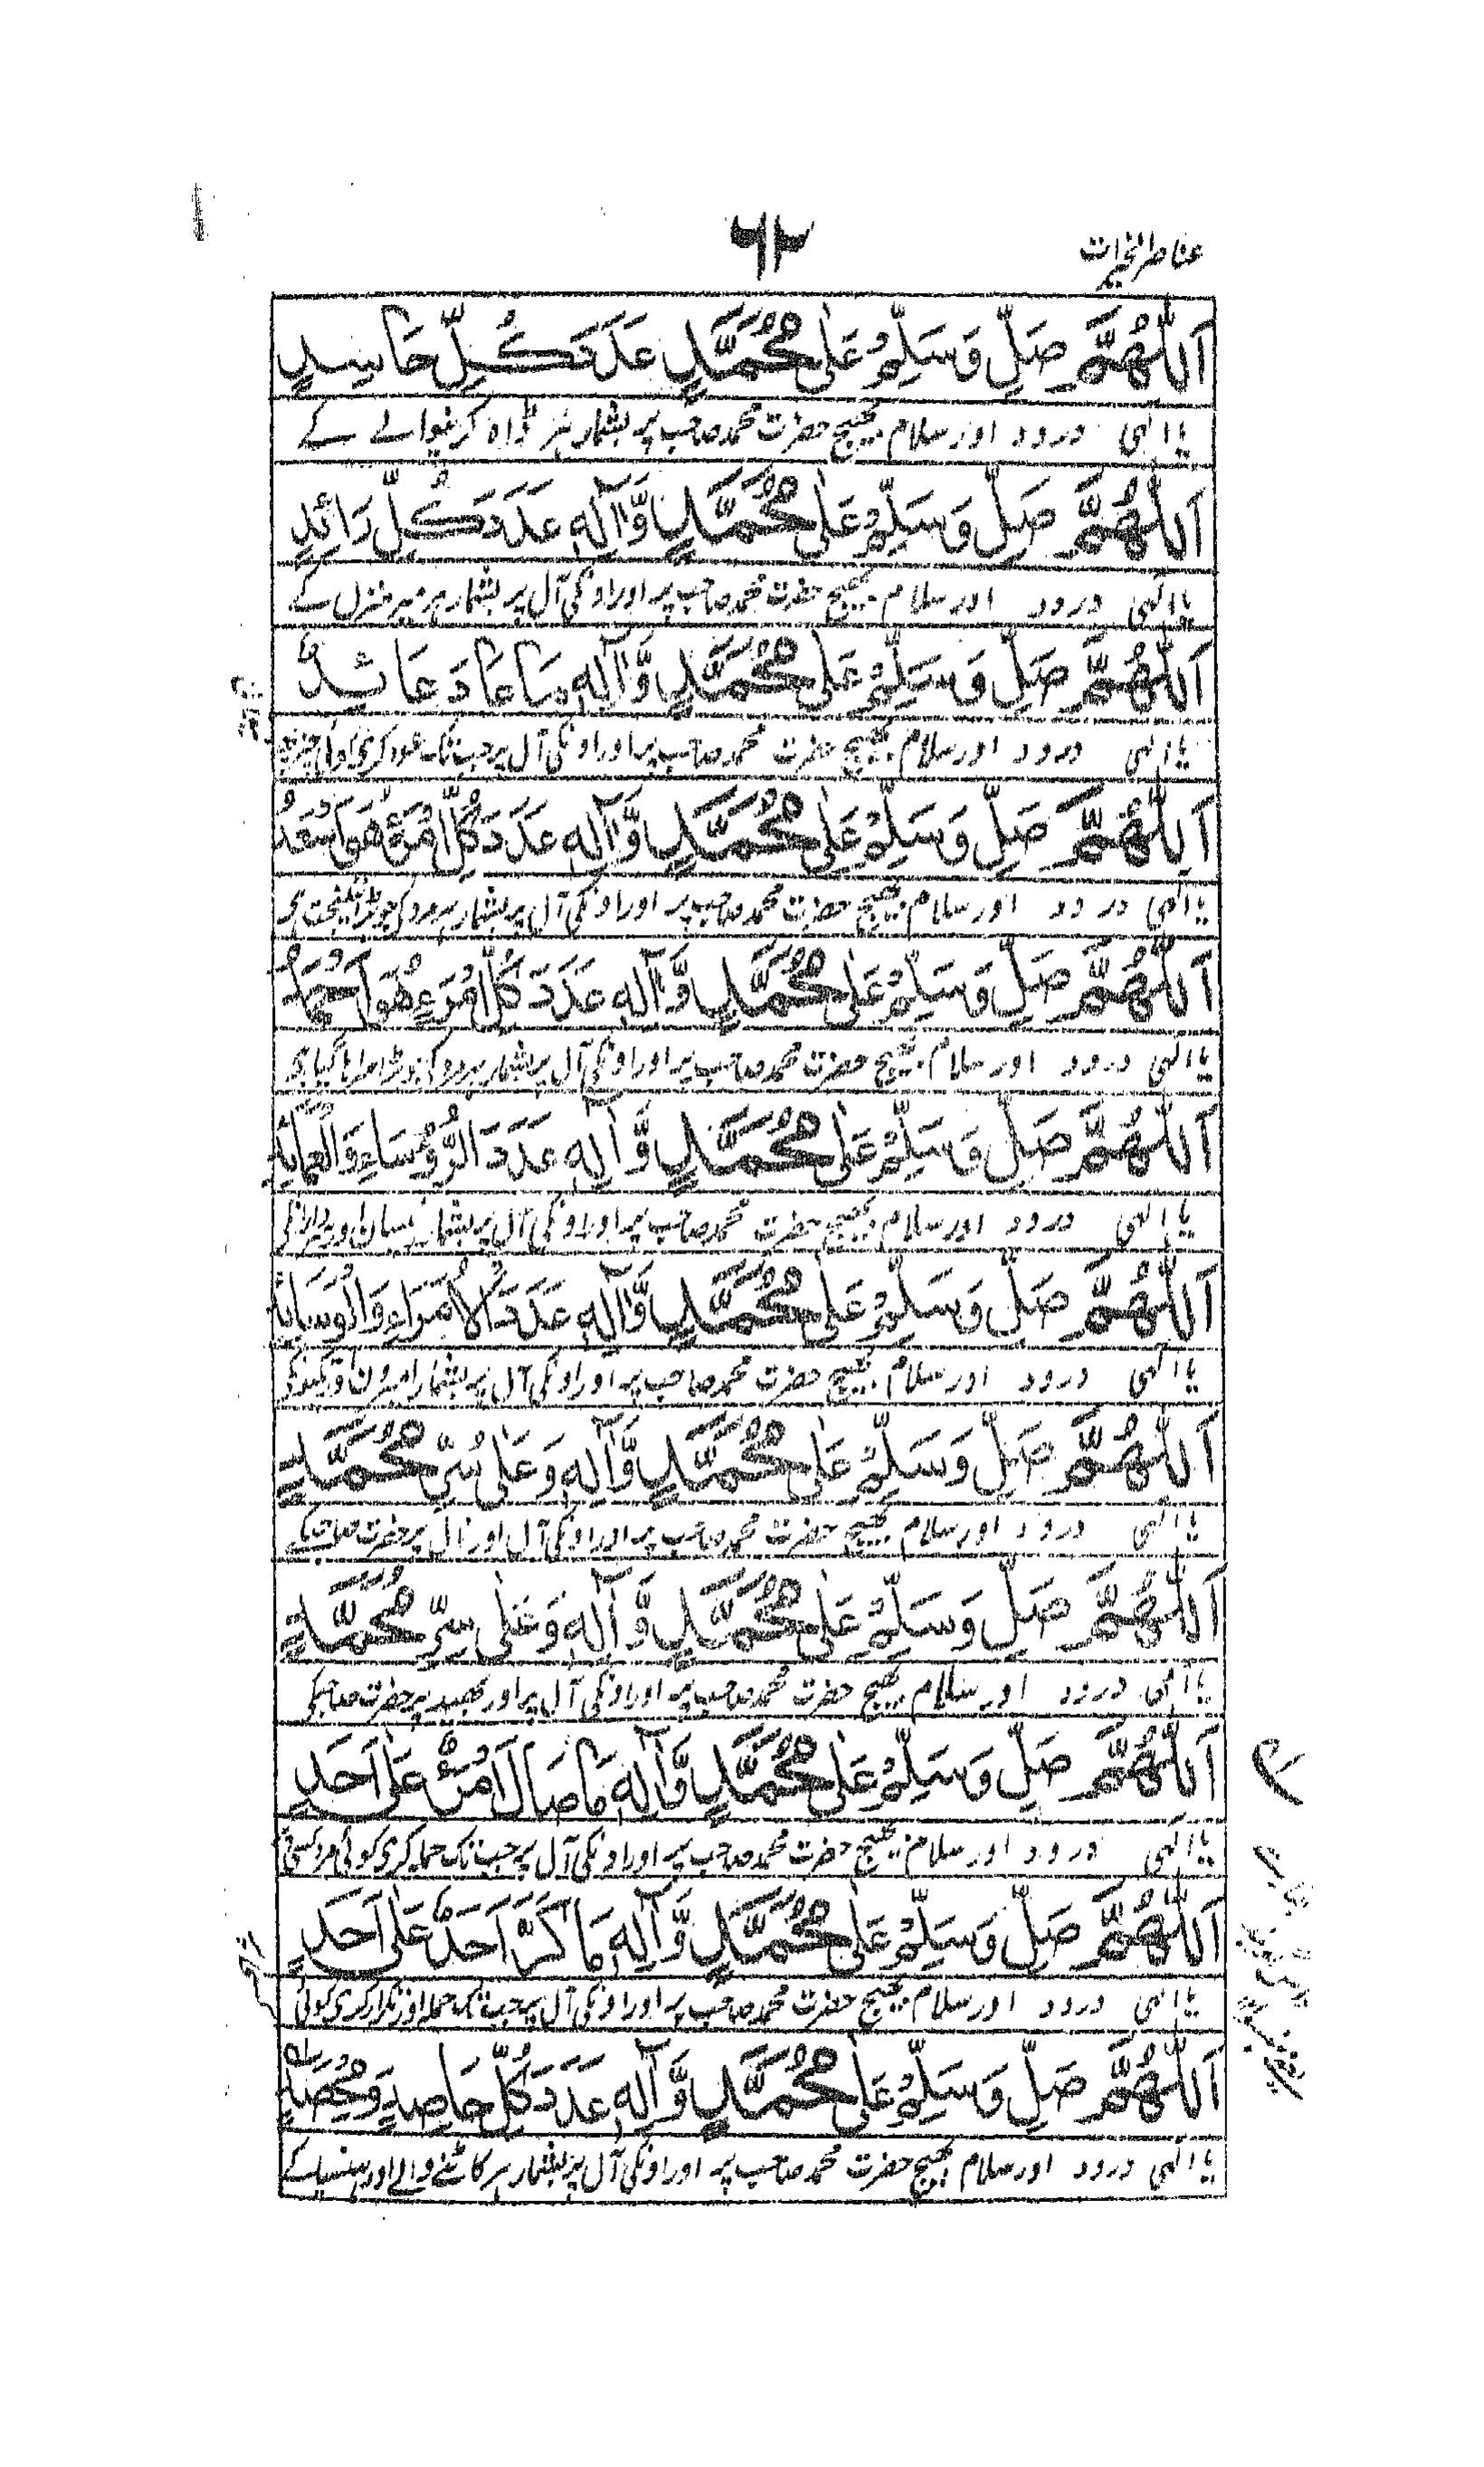 عناصر الخیرات
۶۲
اَللّٰهُمَّ صَلِّ وَسَلِّمْ عَلٰى مُحَمَّدٍ عَدَدَ كُلِّ حَاسِدٍ
یا الٰہی درود اور سلام بھیج حضرت محمد صاحب پر بشمار ہر ڈاہ کرنیوالے کے
اَللّٰهُمَّ صَلِّ وَسَلِّمْ عَلٰى مُحَمَّدٍ وَّاٰلِهٖ عَدَدَ كُلِّ رَائِدٍ
یا الٰہی درود اور سلام بھیج حضرت محمد صاحب پر اور اونکی آل پر بشمار ہر میر منزل کے
اَللّٰهُمَّ صَلِّ وَسَلِّمْ عَلٰى مُحَمَّدٍ وَّاٰلِهٖ مَا عَادَ عَائِدٌ
یا الٰہی درود اور سلام بھیج حضرت محمد صاحب پر اور اونکی آل پر جب تک عود کری کوئی
اَللّٰهُمَّ صَلِّ وَسَلِّمْ عَلٰى مُحَمَّدٍ وَّاٰلِهٖ عَدَدَ كُلِّ امْرَئٍ هُوَ اَسْعَدُ
یا الٰہی درود اور سلام بھیج حضرت محمد صاحب پر اور اونکی آل پر بشمار ہر مرد کی جو بڑا نیکبخت ہی
اَللّٰهُمَّ صَلِّ وَسَلِّمْ عَلٰى مُحَمَّدٍ وَّاٰلِهٖ عَدَدَ كُلِّ امْرَءٍ هُوَ اَحْمَدُ
یا الٰہی درود اور سلام بھیج حضرت محمد صاحب پر اور اونکی آل پر بشمار ہر مرد کی جو بڑا سراہا گیا ہی
اَللّٰهُمَّ صَلِّ وَسَلِّمْ عَلٰى مُحَمَّدٍ وَّاٰلِهٖ عَدَدَ الرُّؤَسَاءِ وَالْعَمَائِدِ
یا الٰہی درود اور سلام بھیج حضرت محمد صاحب پر اور اونکی آل پر بشمار
اَللّٰهُمَّ صَلِّ وَسَلِّمْ عَلٰى مُحَمَّدٍ وَّاٰلِهٖ عَدَدَ الْاُمَرَاءِ وَ
یا الٰہی درود اور سلام بھیج حضرت محمد صاحب پر اور اونکی آل پر بشمار امیرون
اَللّٰهُمَّ صَلِّ وَسَلِّمْ عَلٰى مُحَمَّدٍ وَّاٰلِهٖ وَعَلٰى مُحَمَّدٍ
یا الٰہی درود اور سلام بھیج حضرت محمد صاحب پر اور اونکی آل اور پر حضرت صاحب کے
اَللّٰهُمَّ صَلِّ وَسَلِّمْ عَلٰى مُحَمَّدٍ وَّاٰلِهٖ وَعَلٰى سِرِّ مُحَمَّدٍ
یا الٰہی درود اور سلام بھیج حضرت محمد صاحب پر اور اونکی آل پر اور بھید پر حضرت صاحب کے
اَللّٰهُمَّ صَلِّ وَسَلِّمْ عَلٰى مُحَمَّدٍ وَّاٰلِهٖ مَا صَالَ امْرَئٌ عَلٰى اَحَدٍ
یا الٰہی درود اور سلام بھیج حضرت محمد صاحب پر اور اونکی آل پر جب تک حملہ کری کوئی مرد کسی
اَللّٰهُمَّ صَلِّ وَسَلِّمْ عَلٰى مُحَمَّدٍ وَّاٰلِهٖ مَا كَرَّ اَحَدٌ عَلٰى اَحَدٍ
یا الٰہی درود اور سلام بھیج حضرت محمد صاحب پر اور اونکی آل پر جب تک حملہ اور تکرار کری کوئی
اَللّٰهُمَّ صَلِّ وَسَلِّمْ عَلٰى مُحَمَّدٍ وَّاٰلِهٖ عَدَدَ كُلِّ حَاصِدٍ وَمِحْصَدٍ
یا الٰہی درود اور سلام بھیج حضرت محمد صاحب پر اور اونکی آل پر بشمار ہر کاٹنے والے اور ہنسیا کے